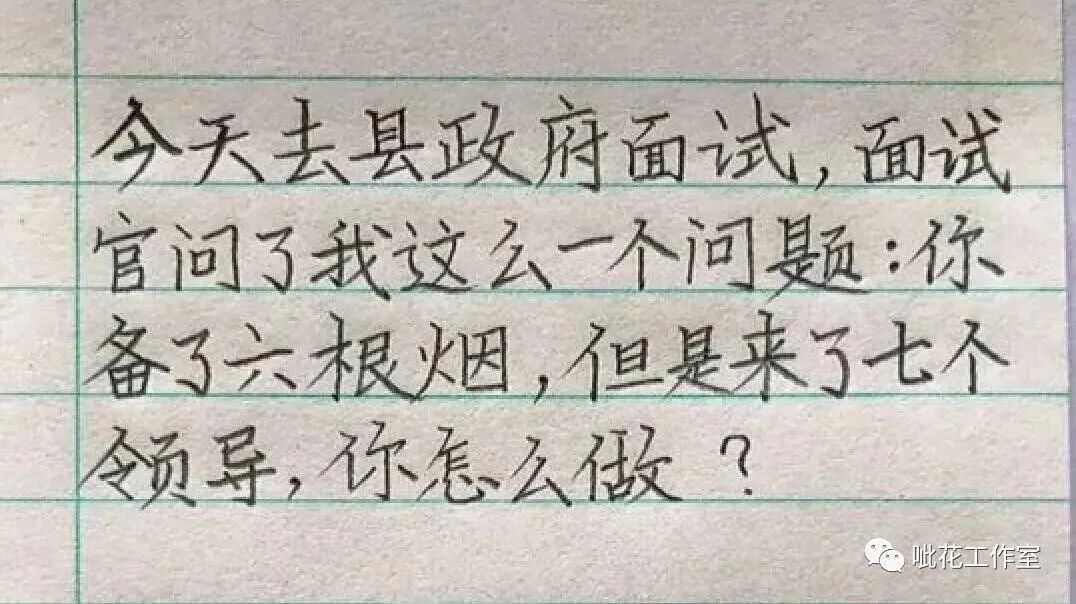 今天去县政府面试,面试
官问了我这么一个问题:你
备了六根烟,但是来了七个
领导,你怎么做?
呲花工作室